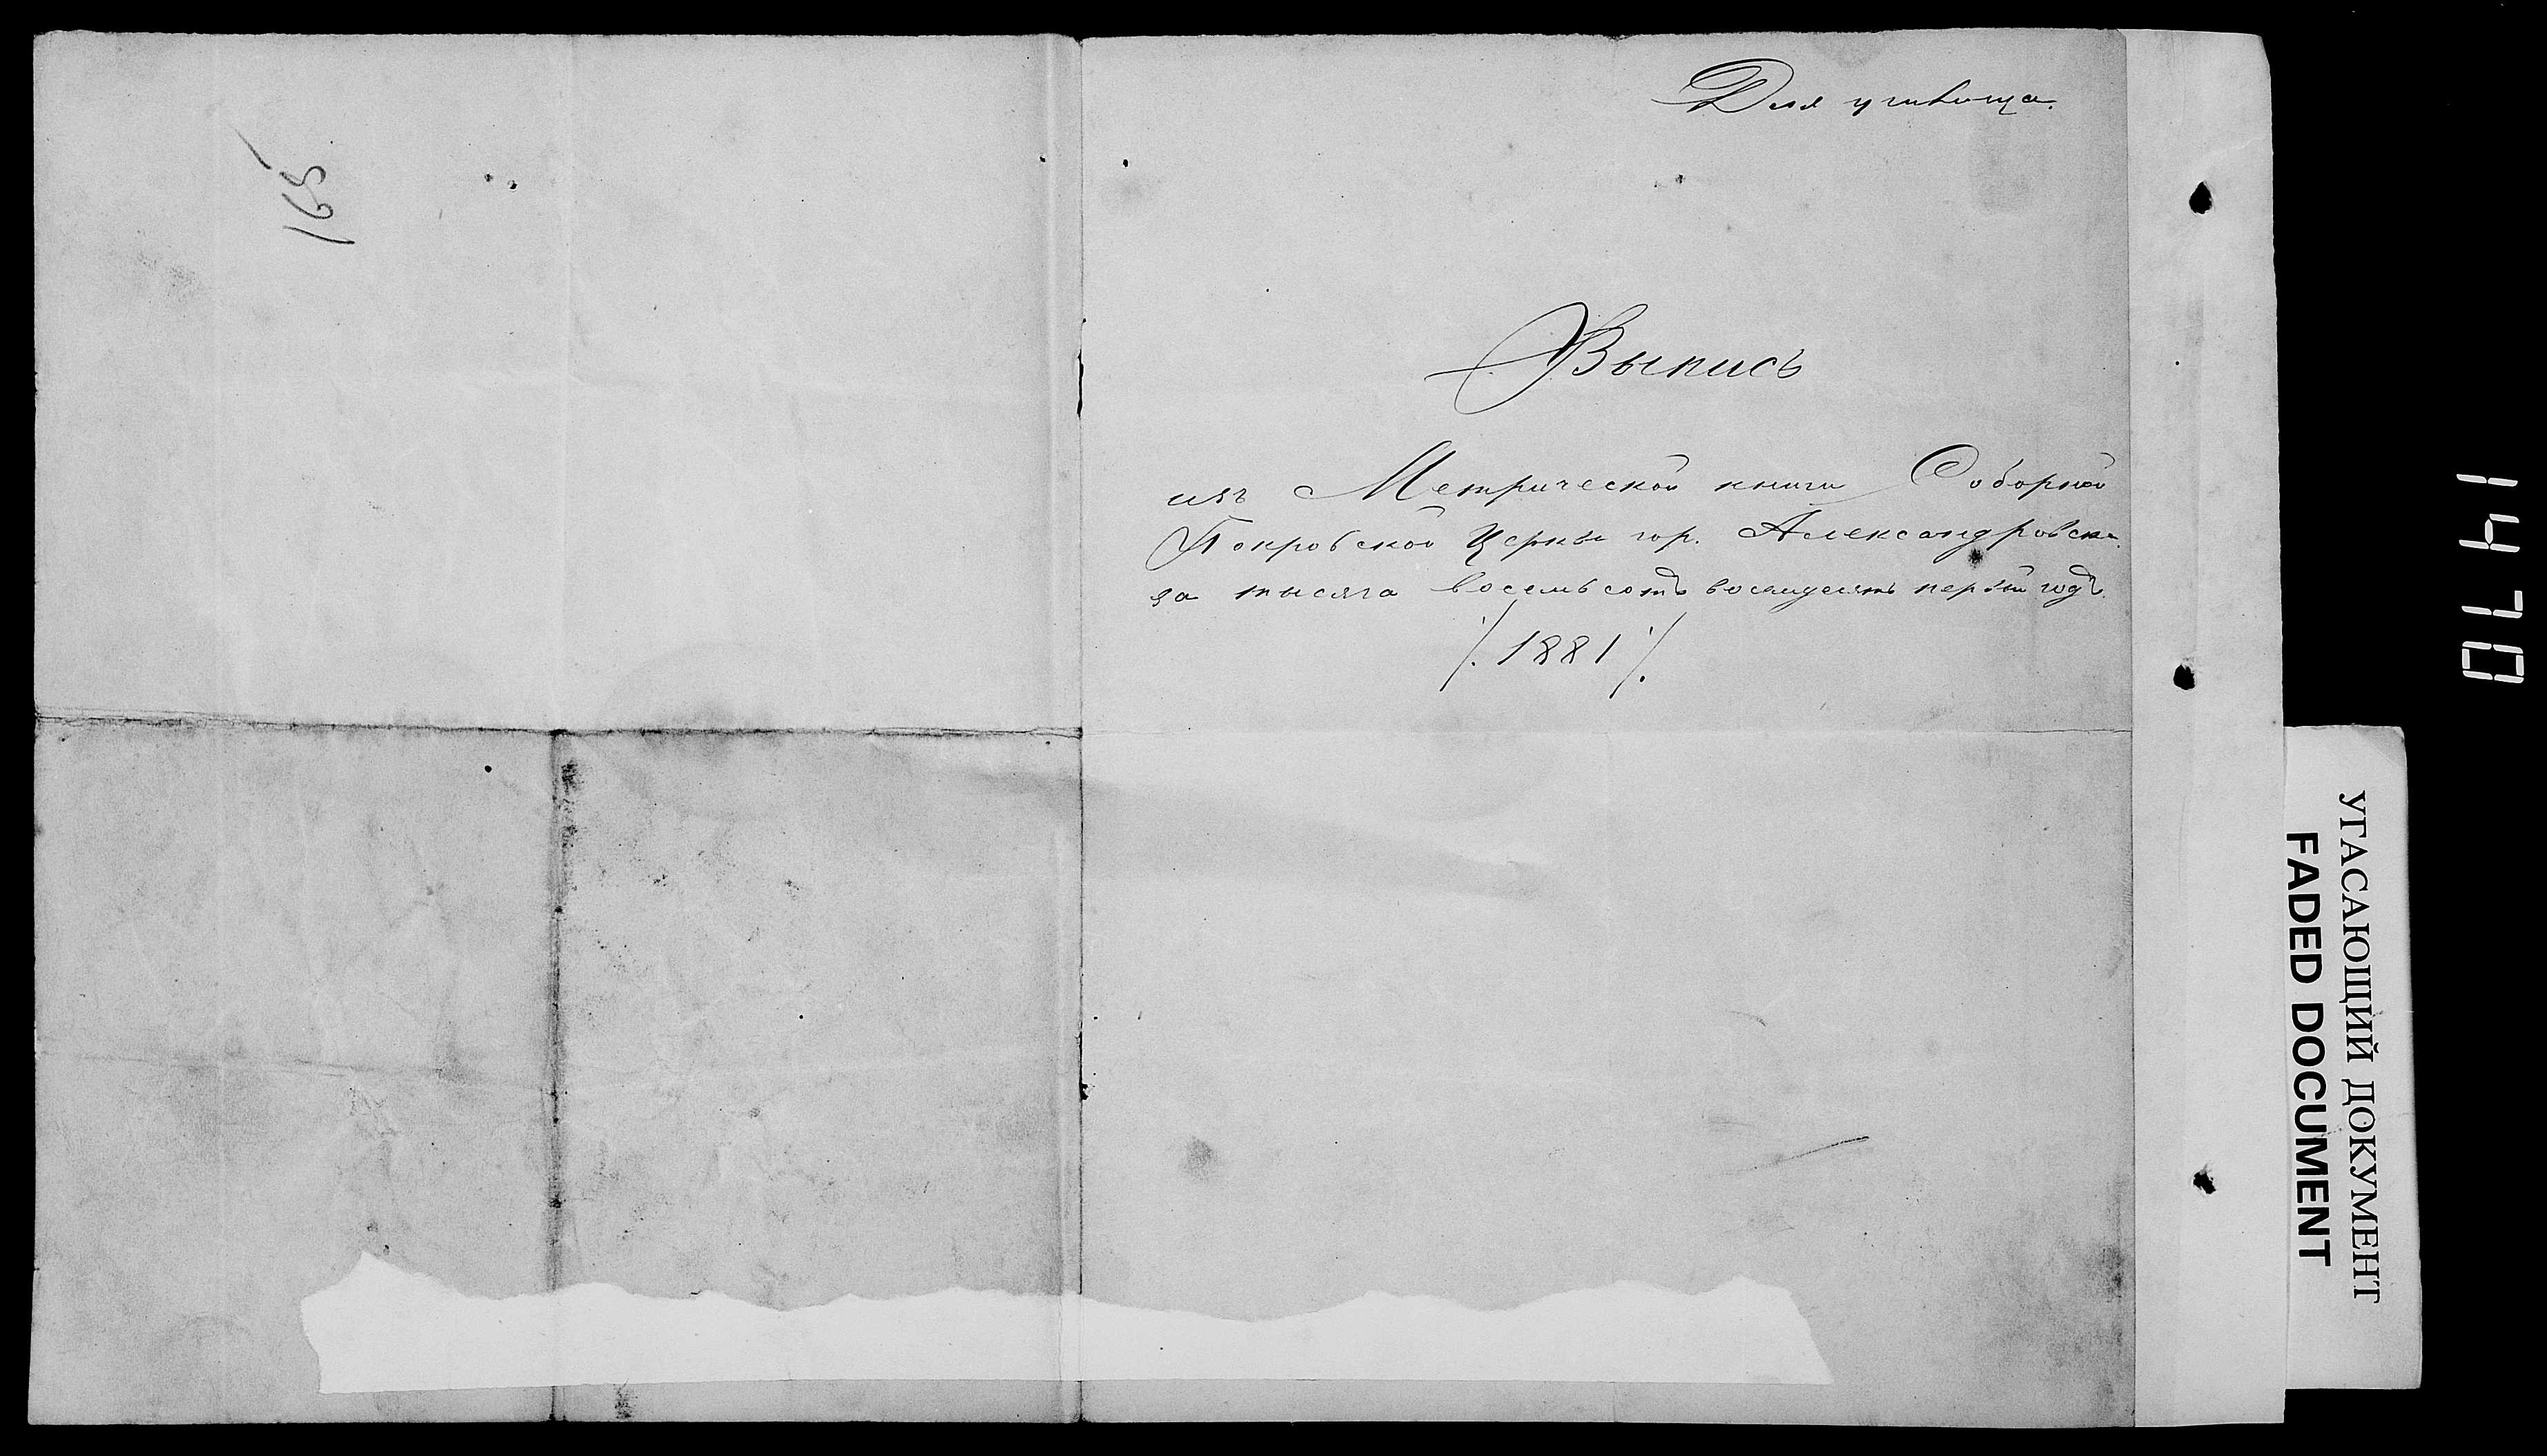 165
Для училища.
Выпись
изъ Метрической книги Соборной
Покровской Церкви гор. Александровска
за тысяча восемьсотъ восемьдесятъ первый годъ
/. 1881 /.
УГАСАЮЩИЙ ДОКУМЕНТ
FADED DOCUMENT
0741